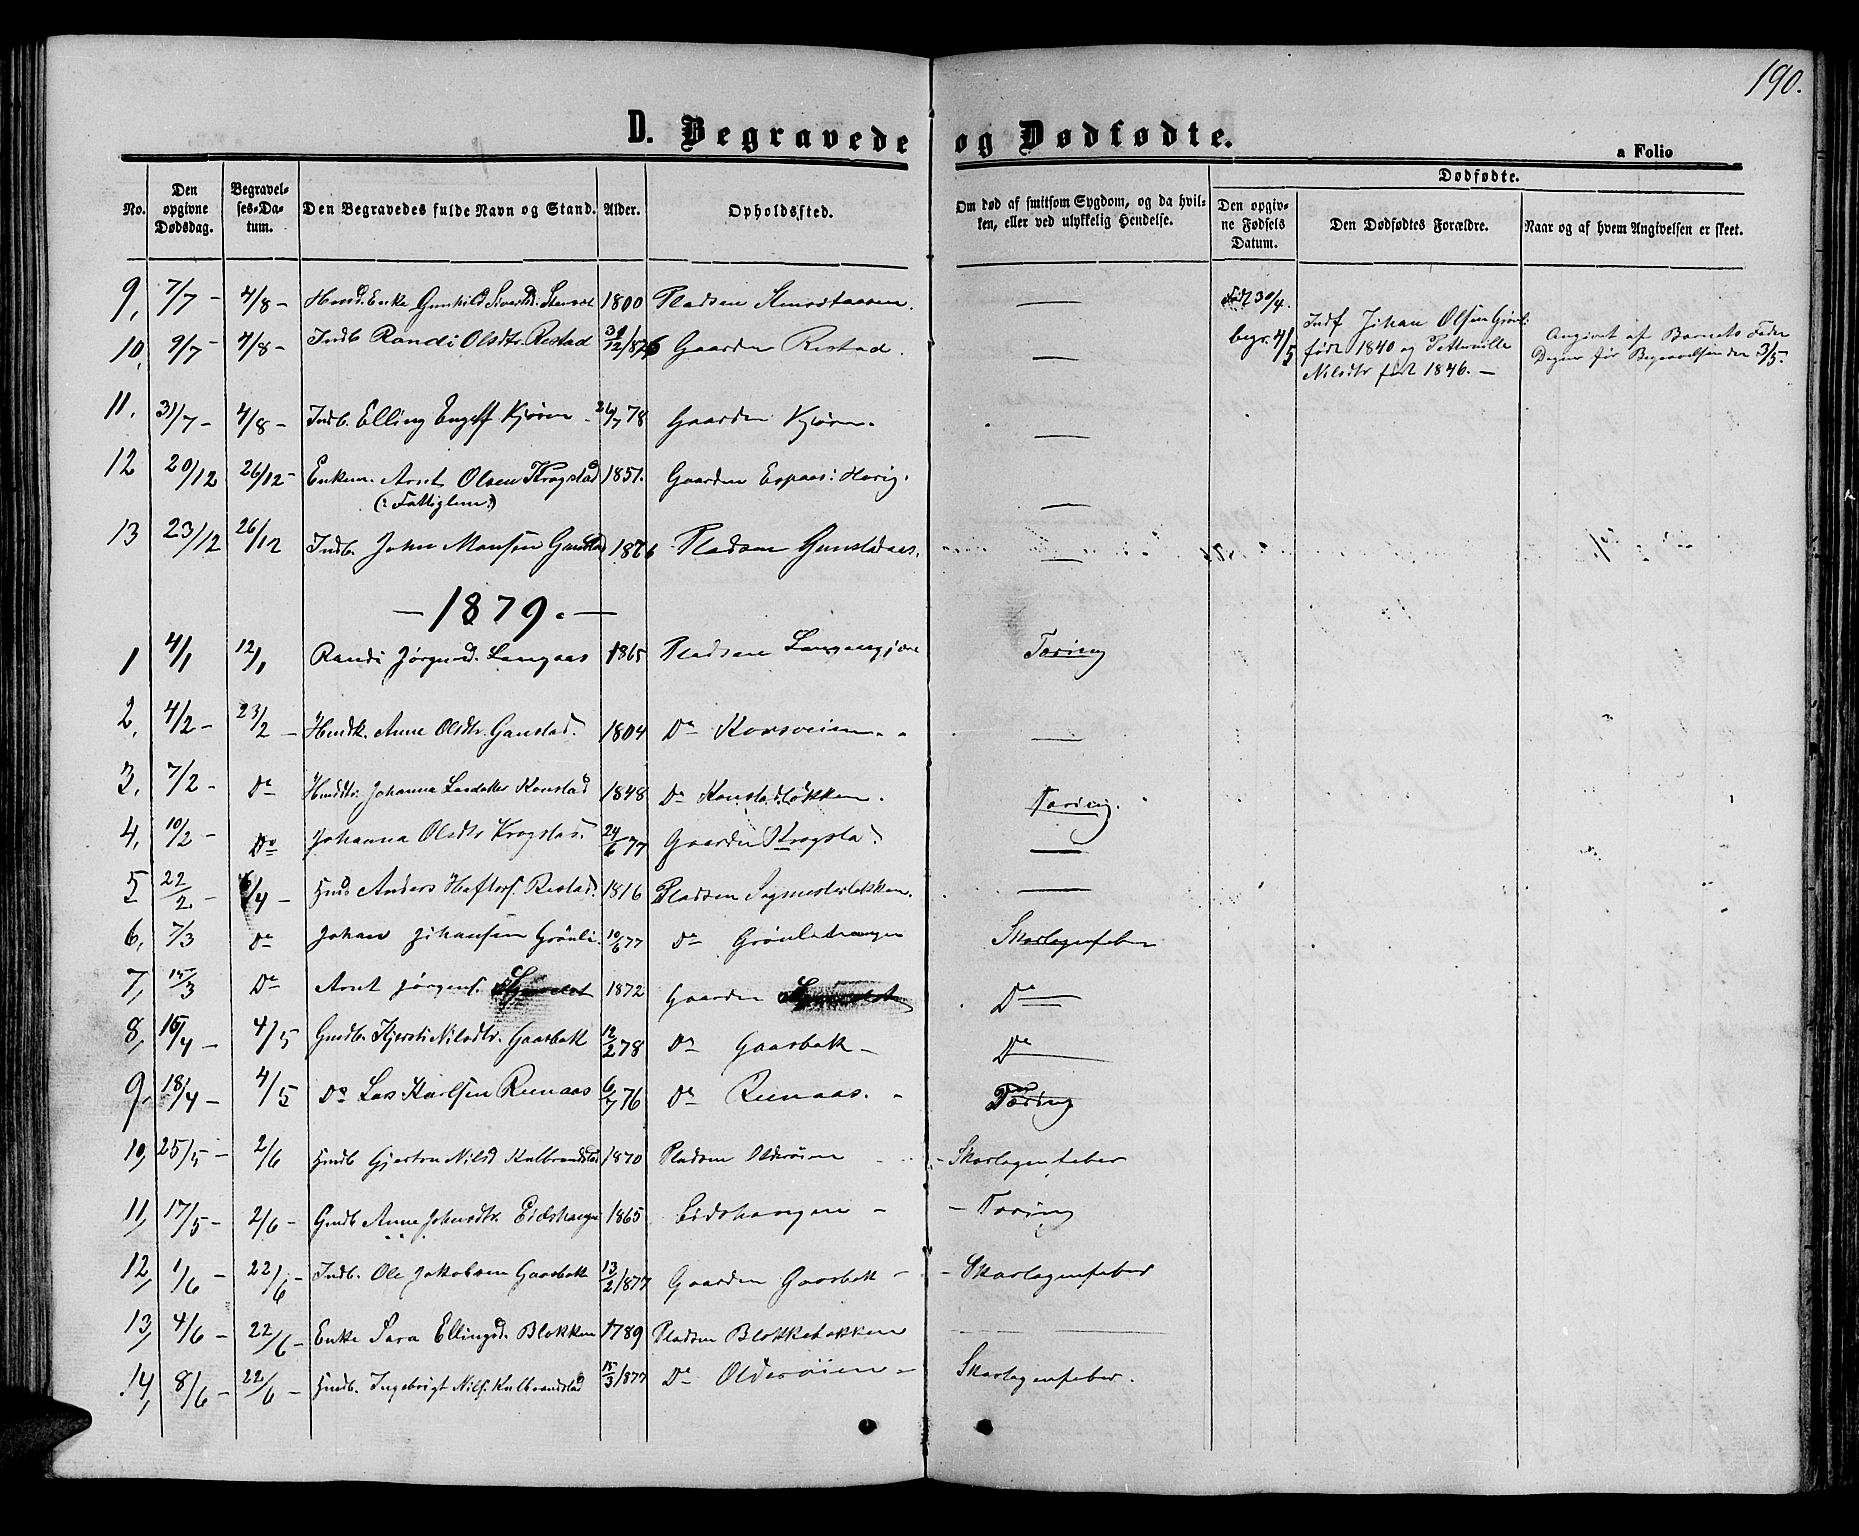 190.
D. Begravede og Dødfødte.
a Folio
No. | Den opgivne Dødsdag. | Begravelses-Datum. | Den Begravedes fulde Navn og Stand. | Alder. | Opholdssted. | Om død af smitsom Sygdom, og da hvilken, eller ved ulykkelig Hendelse. | Dødfødte. | Den opgivne Fødsels Datum. | Den Dødfødtes Forældre. | Naar og af hvem Angivelsen er skeet.
9, 7/7 - 4/8 - Enke Gunhild Sivertsd. 1800 Pladsen —
Født 30/4. begr. 4/5
Indf Johan Olsen Grønli født 1840 og Nilsdtr født 1846. —
Angivet af Barnets Fader Dagen før Begravelsen den 3/5.
10, 9/7 - 4/8 - Indb Randi Olsdtr. Restad 30/12/876 Gaarden Restad. —
11, 31/7 - 4/8 - Indb. Elling Kjøren - 26/7 78 Gaarden Kjøren. —
12 20/12 26/12 - Enkem. Arnt Olsen Krogstad 1851. Gaarden Espaas: Horig. —
(: Fattiglem:)
13 23/12 26/12 Indb. John Monsen 1876 Pladsen Gunstadaas. —
— 1879. —
1 4/1 12/1 Randi Jørgensd. Langaas 1865 Pladsen Tæring
2, 4/2 - 23/2 - Husmk. Anne Olsdtr. Gunstad. 1804 Do Korsveien. —
3, 7/2 - Do Johanna Larsdatter Konstad 1848 Do Konstadløkken. Tæring.
4, 10/2 - Do Johanna Olsdtr Krogstad. 24/6 77 Gaarden Krogstad —
5 22/2 - 4/4 - Husm Anders Haftors. Restad. 1816 Pladsen —
6, 7/3 Do Johan Johansen Grönli. 10/6 77 Do Skarlagenfeber
7, 15/3 Do Arnt Jörgens. 1872 Gaarden Do —
8, 15/4 - 4/5 Gmdb. Kjersti Nilsdtr. Gaasbak 12/2 78 Do Gaasbak - Do —
9, 18/4 - 4/5 Do Lars Karlsen Reenaas 6/7 76 Do Reenaas. - Tæring
10, 25/5 - 2/6 Husmb Gjertru Nilsd Kulbrandstad 1870 Pladsen Olderøien - Skarlagenfeber
11, 17/5 - 2/6 - Gmdb Anne Johnsdtr. Eidshaugen 1865 Eidshaugen - - Tæring
12, 1/6 - 22/6 - Indb. Ole Jakobsen Gaasbak 13/2/877 Gaarden Gaasbak - - Skarlagenfeber
13, 4/6 - 22/6 - Enke Sara Ellingsd. Blokken 1789 Pladsen —
14, 8/6 - 22/6 - Husmb. Ingebrigt Nils. Kulbrandstad 15/3/877 Do Olderøien - Skarlagenfeber.